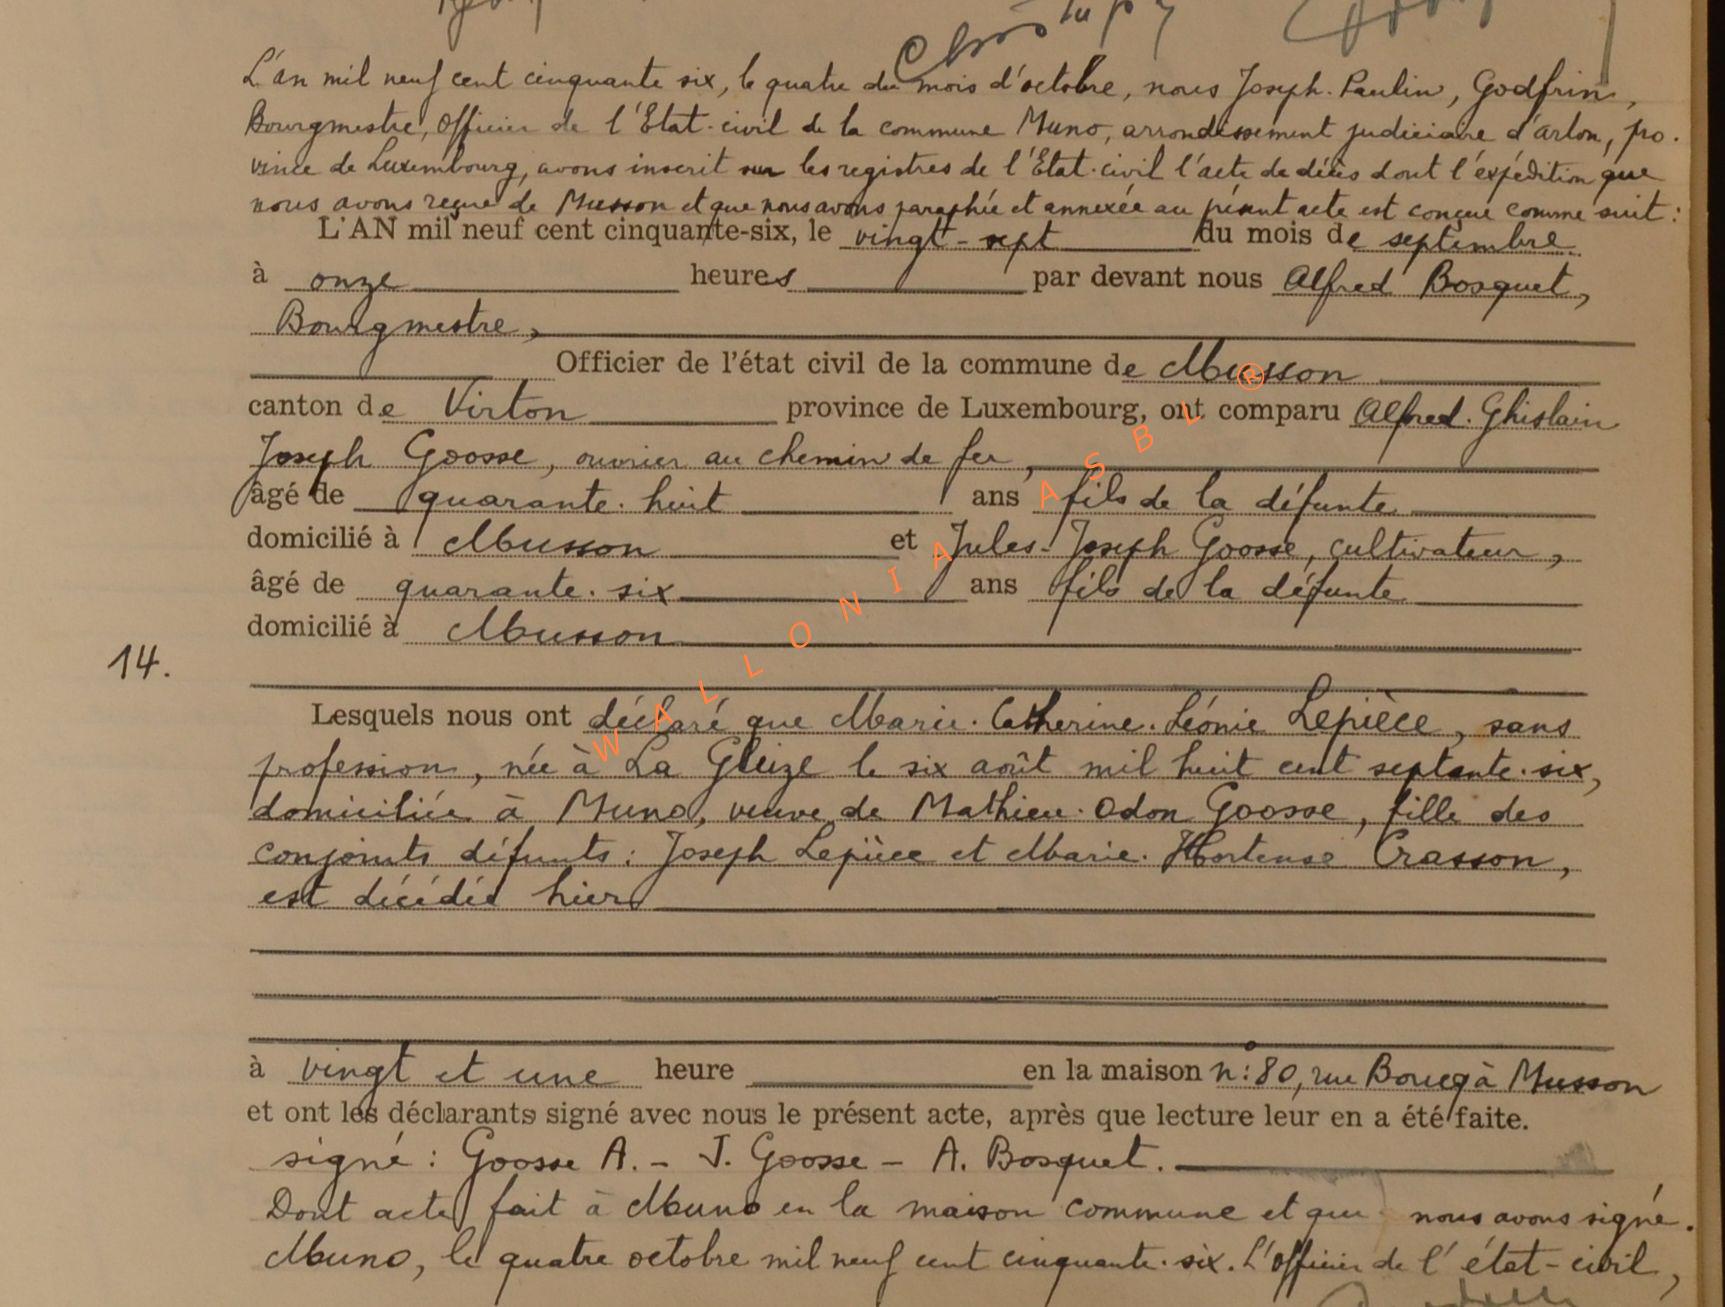 L'an mil neuf cent cinquante six, le quatre du mois d'octobre, nous Joseph-Paulin, Godfrin,
Bourgmestre, Officier de l'Etat-civil de la commune Muno, arrondissement judiciaire d'arlon, pro-
vince de Luxembourg, avons inscrit sur les registres de l'Etat-civil l'acte de décès dont l'expédition que
nous avons reçue de Musson et que nous avons paraphée et annexée au présent acte est conçue comme suit :
L'AN mil neuf cent cinquante-six, le vingt-sept du mois de septembre
à onze heures par devant nous Alfred Bosquet,
Bourgmestre,
Officier de l'état civil de la commune de Musson
canton de Virton province de Luxembourg, ont comparu Alfred-Ghislain
Joseph Goosse, ouvrier au chemin de fer,
âgé de quarante-huit ans fils de la défunte
domicilié à Musson et Jules-Joseph Goosse, cultivateur,
âgé de quarante-six ans fils de la défunte
domicilié à Musson
14.
Lesquels nous ont déclaré que Marie-Catherine-Léonie Lepièce, sans
profession, née à La Gleize le six août mil huit cent septante-six,
domiciliée à Muno, veuve de Mathieu-Odon Goosse, fille des
conjoints défunts : Joseph Lepièce et Marie-Hortense Crasson,
est décédée hier
à vingt et une heure en la maison n° : 80, rue Bourg à Musson
et ont les déclarants signé avec nous le présent acte, après que lecture leur en a été faite.
signé : Goosse A. - J. Goosse - A. Bosquet.
Dont acte fait à Muno en la maison commune et que nous avons signé.
Muno, le quatre octobre mil neuf cent cinquante-six. L'officier de l'état-civil,
WALLONIA ASBL ®